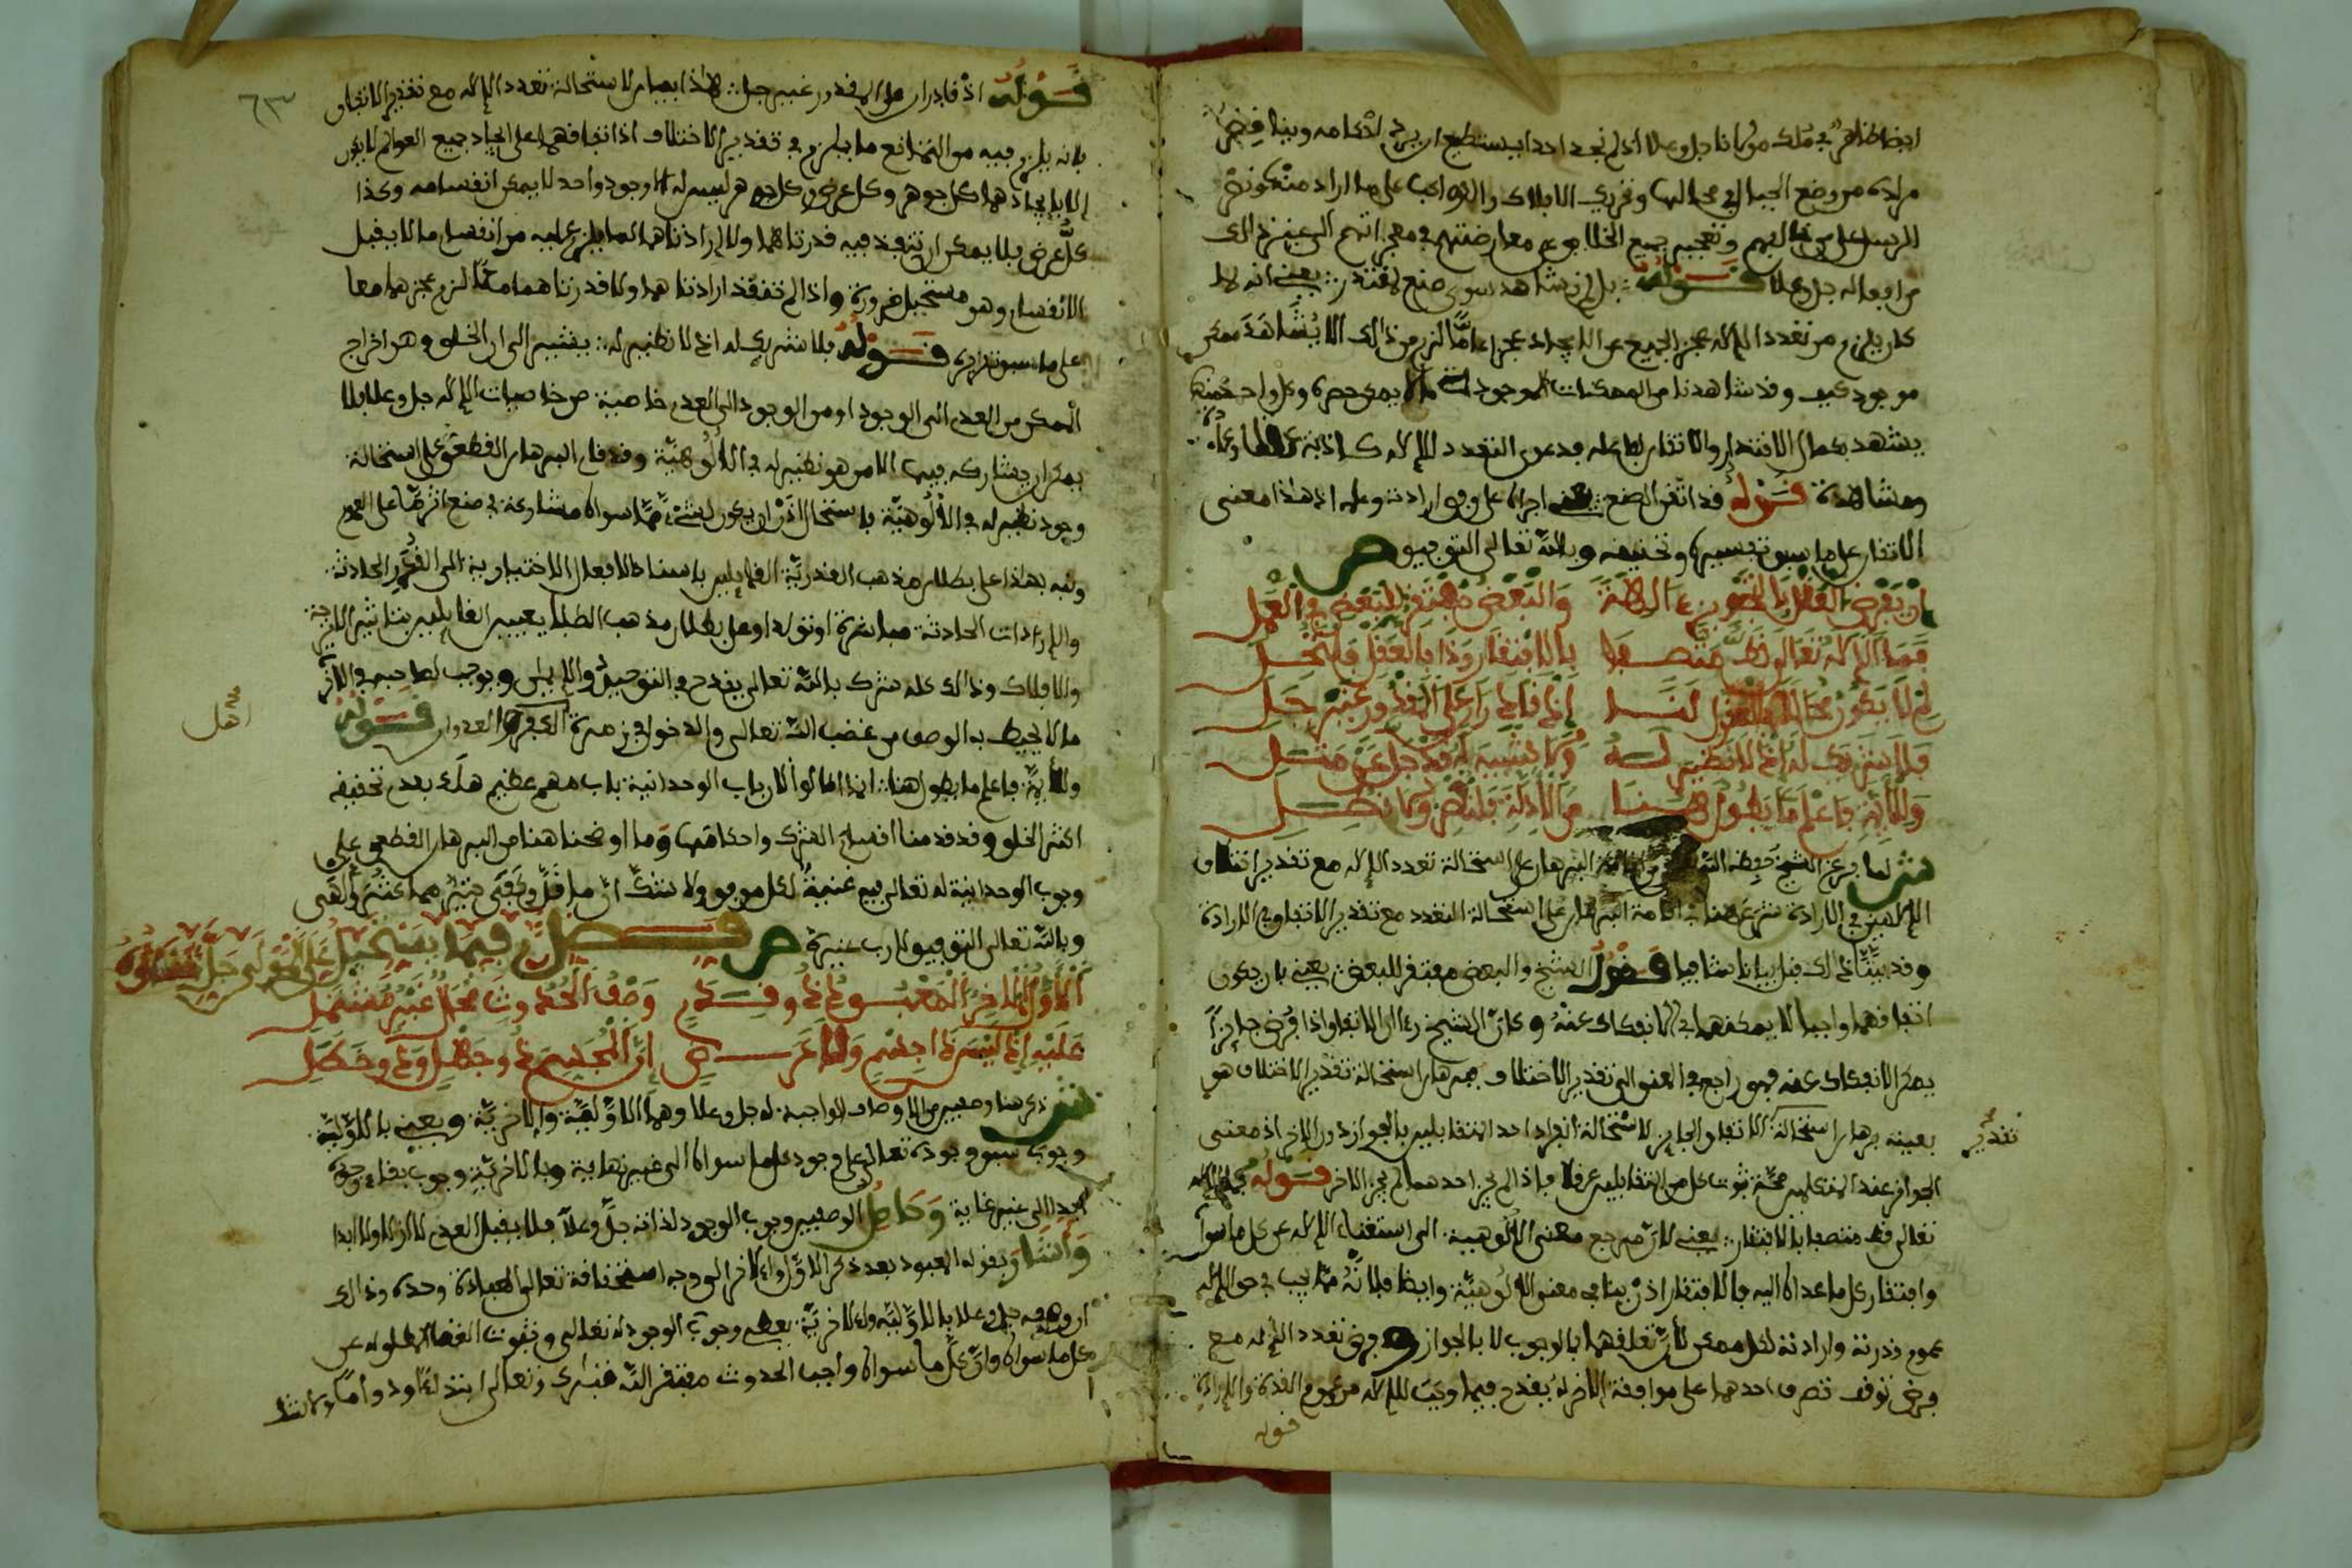 ايضا ظاهر في ملك مولانا جل وعلا اذ لم نجد احدا يستطيع ان يرد احكامه ويناقض
مراده من وضع الجبال في محالها وتحريك الافلاك والكواكب على ما اراد منتكونه
الرسل على من خالفهم وتعجيز جميع الخلايق عن معارضتهم في معجزاتهم الى غير ذالك
من افعاله جل وعلا قوله بل لم نشاهد سوى صنع لمقتدر يعني انه لما
كان يلزم من تعدد الاله عجز الجميع عن الايجاد عجزا عاما لزم من ذالك الا يشاهد ممكن
موجود كيف وقد شاهدنا من الممكنات الموجودات ما لا يمكن حصره وكل واحد منها
يشهد بكمال الاقتدار والاتقان لفاعله فدعوى التعدد للاله كاذبة عقلا وعادة
ومشاهدة قوله قد اتقن الصنع يعني اجراه على وفق ارادته وعلمه اذ هذا معنى
الاتقان على ما سبق تفسيره وتحقيقه وبالله تعالى التوفيق ص
ان يفرض الفعل بالتعوين عادلهة والبعض مفتقر للبعض في العمل
فما الاله تعالى قط متصفا بالافتقار وذا بالعقل فانتحل
لم لا يكون محالا في العقول لنا اذ قادران على المقدور غير جلي
فلا شريك له اذ لا نظير له ولا شبيه له قد جل عن مثل
وللاية فاعلم ما يطول هنا من الادلة فلتقصر ولا تطل
ش لما فرغ الشيخ حفظه الله من اقامة البرهان على استحالة تعدد الاله مع تقدير اختلاف
الالهين في الارادة شرع هنا في اقامة البرهان على استحالة التعدد مع تقدير الاتفاق في الارادة
وقد بينا ذالك قبل بيانا شافيا فقول الشيخ والبعض مفتقر للبعض يعني بان يكون
اتفاقهما واجبا لا يمكنهما الانفكاك عنه وكان الشيخ رءا ان الاتفاق اذا فرض جايزا
يمكن الانفكاك عنه فهو راجع في المعنى الى تقدير الاختلاف فبرهان استحالة تقدير الاختلاف هو
بعينه برهان استحالة الاتفاق الجايز لاستحالة انفراد احد المتقابلين بالجواز دون الاخر اذ معنى
تقدير
الجواز عند المتكلمين صحة ثبوت كل من المتقابلين عرفا فاذا لم يجز احدهما لم يجز الاخر قوله فما الاله
تعالى قط متصفا بالافتقار يعني لان مرجع معنى الالوهية الى استغناء الاله عن كل ما سواه
وافتقار كل ما عداه اليه فالافتقار اذن ينافي معنى الالوهية وايضا فلانه مما يجب في حق الاله
عموم قدرته وارادته لكل ممكن لان تعلقهما بالوجوب لا بالجواز وفرض تعدد الاله مع
فرض توقف تصرف احدهما على موافقة الاخر له يقدح فيما وجب للاله من عموم القدرة والارادة
قوله
٦٣
قوله اذ قادران على المقدور غير جلي هاذا بيان لاستحالة تعدد الاله مع تقدير الاتفاق
بانه يلزم فيه من التمانع ما يلزم في تقدير الاختلاف اذا تفاقهما على ايجاد جميع العوالم لا يكون
الا بايجادهما كل جوهر وكل عرض وكل جوهر ليس له الا وجود واحد لا يمكن انقسامه وكذا
كل عرض فلا يمكن ان تنفذ فيه قدرتاهما ولا ارادتاهما لما يلزم عليه من انقسام ما لا يقبل
الانقسام وهو مستحيل ضرورة واذا لم تنفذ ارادتاهما ولا قدرتاهما معا لزم عجزهما معا
على ما سبق تقريره قوله فلا شريك له اذ لا نظير له يشير الى ان الخلق وهو اخراج
الممكن من العدم الى الوجود او من الوجود الى العدم خاصية من خاصيات الاله جل وعلا فلا
يمكن ان يشاركه فيها الا من هو نظير له في الالوهية وقد قام البرهان القطعي على استحالة
وجود نظير له في الالوهية فاستحال اذن ان يكون لشيء مما سواه مشاركة في صنع اثر ما على العموم
ونبه بهاذا على بطلان مذهب القدرية القايلين باسناد الافعال الاختيارية الى القدر الحادثة
والارادات الحادثة مباشرة او تولدا وعلى بطلان مذهب الطبايعيين القايلين بتاثير الامزجة
والافلاك وذالك كله شرك بالله تعالى يقدح في التوحيد والايمان ويوجب لصاحبه في الاخرة
ما لا يحيط به الوصف من غضب الله تعالى والدخول في زمرة الكفرة العدوان قوله
اهل
وللاية فاعلم ما يطول هنا انما اطالوا لان باب الوحدانية باب مهم عظيم هلك بعدم تحقيقه
اكثر الخلق وقد قدمنا اقسام الشرك واحكامها وما اوضحنا هنا من البرهان القطعي على
وجوب الوحدانية له تعالى فيه غنية لكل موفق ولا شك ان ما قل وكفى خير مما كثر والهى
وبالله تعالى التوفيق لا رب غيره ص فصل فيما يستحيل على المولى جل وعلا
الاول الاخر المعبود ذو قدم وصف الحدوث محال غير مشتمل
عليه اذ ليس ذا جسم ولا عرض ان المجسم ذو جهل وذو خطل
ش ذكر هنا وصفين من الاوصاف الواجبة له جل وعلا وهما الاولية والاخرية ويعني بالاولية
وجوب سبق وجوده تعالى على وجود كل ما سواه الى غير نهاية وبالاخرية وجوب بقاء وجوده
ابدا الى غير غاية وحاصل الوصفين وجوب الوجود لذاته جل وعلا فلا يقبل العدم لا ازلا ولا ابدا
واشار بقوله المعبود بعد ذكر الاول والاخر الى وجه استحقاقه تعالى العبادة وحده وذالك
ان وصفه جل وعلا بالاولية والاخرية يعطي وجوب الوجود له تعالى وثبوت الغنا المطلق له عن
كل ما سواه وان كل ما سواه واجب الحدوث مفتقر الله تبارك وتعالى ابتداء ودواما